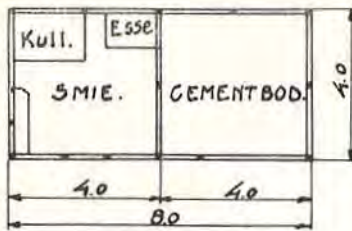 Kull. Esse
SMIE. CEMENTBOD.
4.0
4.0 4.0
8.0